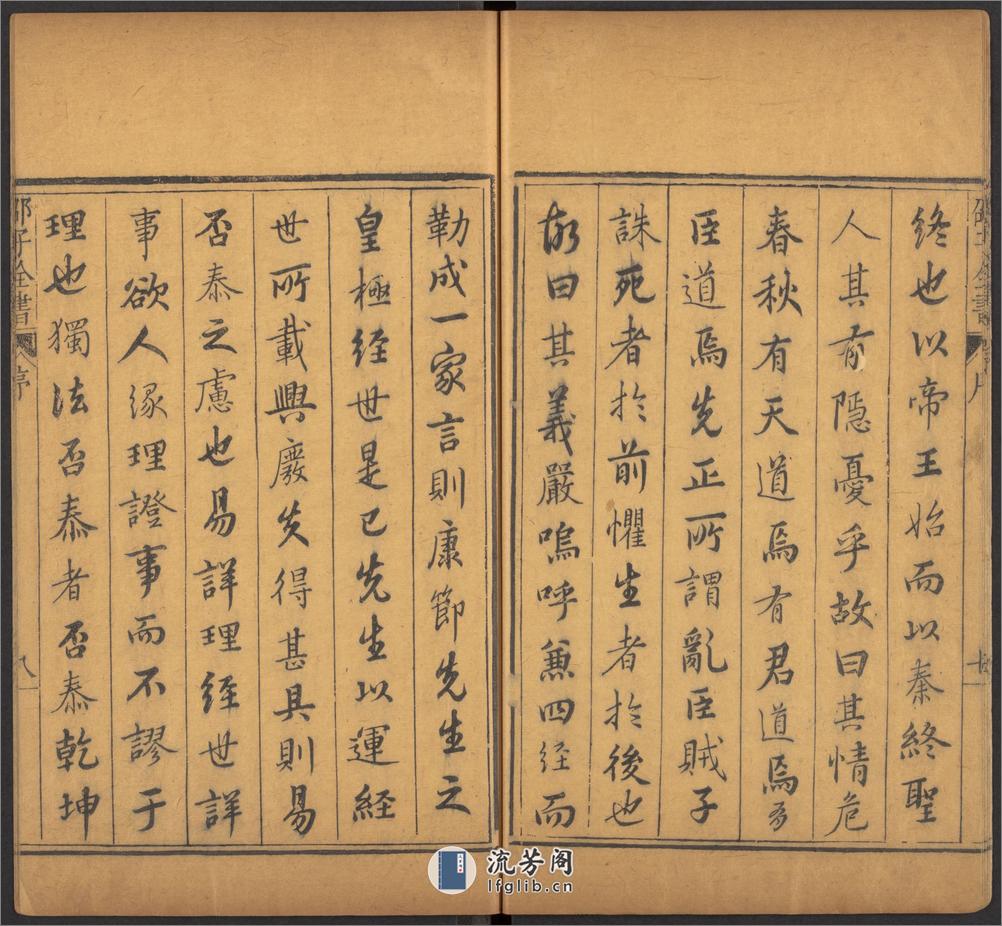 終也以帝王始而以秦終聖
人其有隱憂乎故曰其情危
春秋有天道焉有君道焉有
臣道焉先正所謂亂臣賊子
誅死者於前懼生者於後也
故曰其義嚴嗚呼兼四经而
勒成一家言則康節先生之
皇極經世是已先生以運経
世所載興廢失得甚具則易
否泰之慮也易詳理經世詳
事欲人緣理證事而不謬于
理也獨法否泰者否泰乾坤
邵子全書
序
流芳阁
lfglib.cn